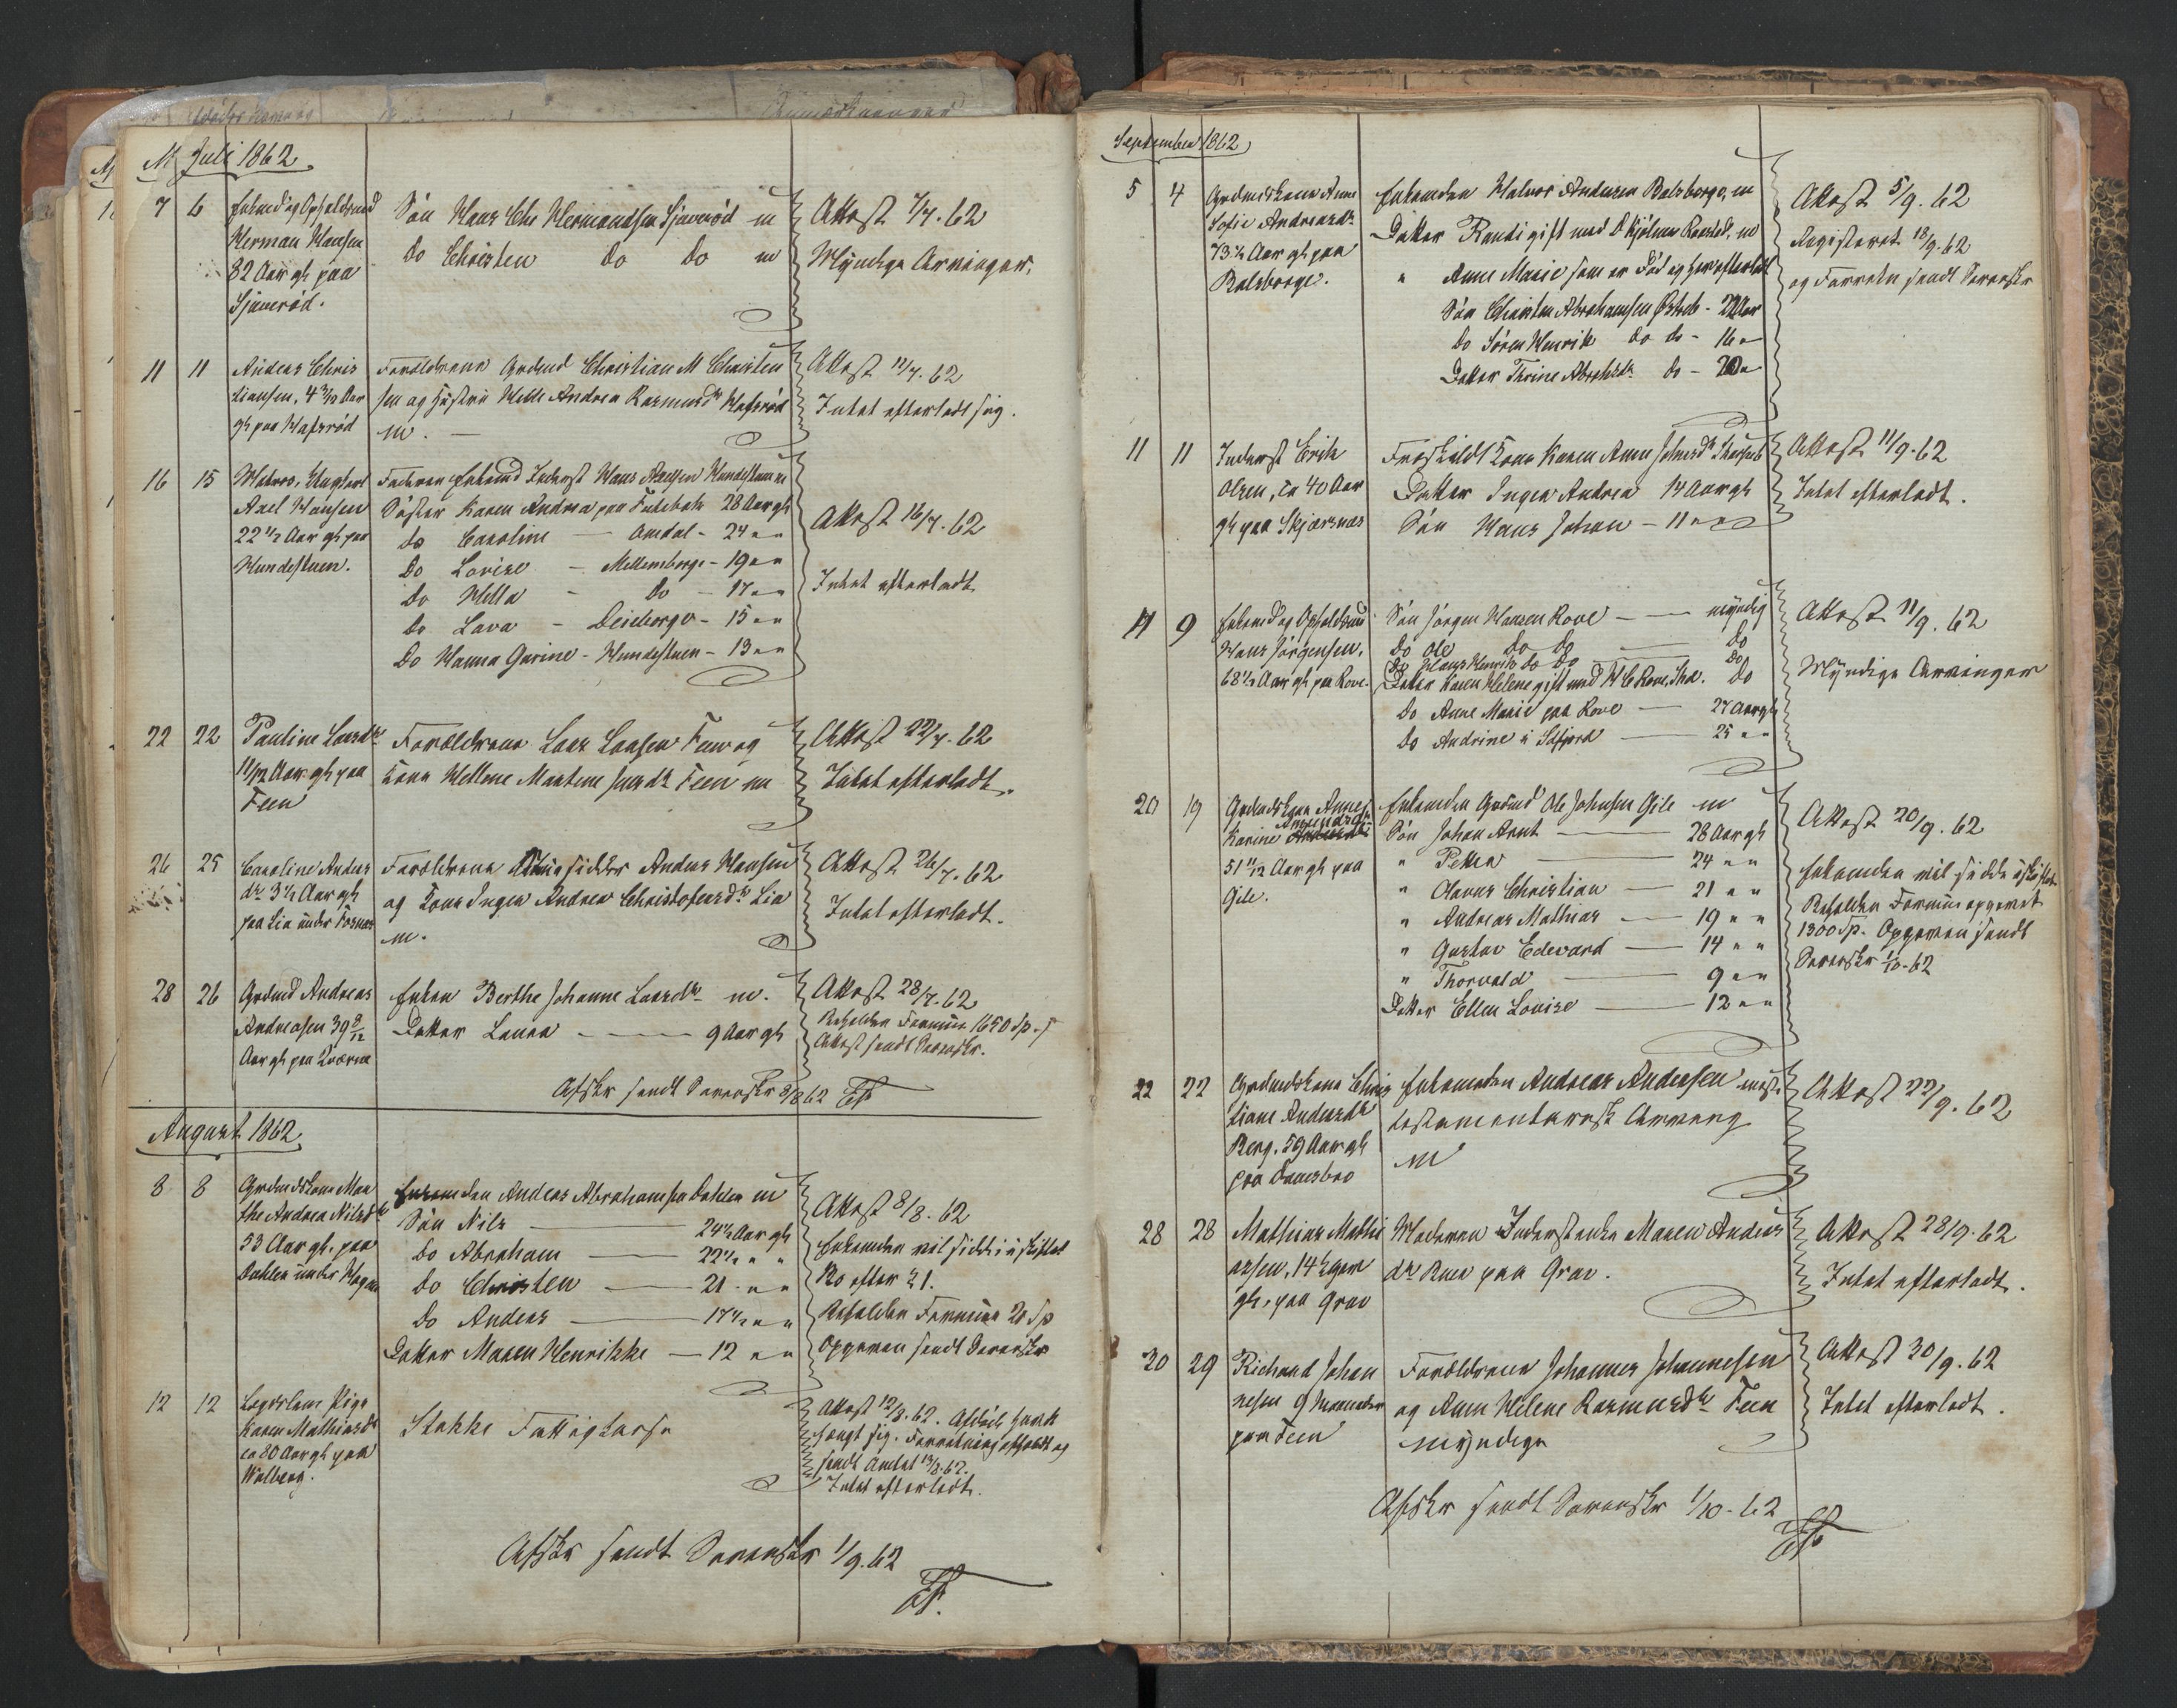 M Juli 1862
7 6 Enkemd og Opholdsmd
Herman Hansen
82 Aar gl. paa
Sjauerød.
Søn Hans Chr Hermandsen Sjauerød m
Do Christen Do Do m
Attest 7/7. 62
Myndige Arvinger.
11 11 Anders Chris
tiansen, 4 3/12 Aar
gl paa Hafsrød
Forældrene Grdmd Christian M Christen
sen og Hustru Helle Andrea Rasmusdr Hafsrød
m.
Attest 11/7. 62
Intet efterladt sig.
16 15 Matros, Ungkarl
Axel Hansen
22 1/2 Aar gl paa
Hundestuen.
Faderen Enkemd Inderst Hans Hundestuen m
Søster Karen Andrea paa 28 Aar gl
do Caroline - Omdal - 24 " "
Do Lovise - Mellemborge - 19 " "
Do Hella - Do - 17 " "
Do Lava - - 15 " "
Do Hanna Gurine - Hundestuen - 13 " "
Attest 16/7. 62
Intet efterladt
22 22 Pauline Larsdr
11/12 Aar gl paa
Feen
Forældrene Lars Larsen Feen og
Kone Hellene Martine Feen m
Attest 22/7. 62
Intet efterladt.
26 25 Caroline Anders
dr 3 1/2 Aar gl
paa Lia under Fosnæs
Forældrene Anders Hansen
og Kone Inger Andrea Christofersdr Lia
m.
Attest 26/7. 62
Intet efterladt.
28 26 Grdmd Andreas
Andreasen 39 8/12
Aar gl paa Qværne
Enken Berthe Johanne Larsdr m.
Datter Laura 9 Aar gl
Attest 28/7. 62
Beholden Formue 1650 Sp.
Attest sendt Sorenskr.
Afskr sendt Sorenskr 8/8 62
August 1862
8 8 Grdmdskone Mar
the Andrea Nilsdr
53 Aar gl. paa
Dahlen under Hogsnes
Enkemden Anders Abrahamsen Dahlen m
Søn Nils 24 1/2 Aar gl
Do Abraham 22 1/2 " "
Do Christen 21 " "
Do Anders 17 1/2 " "
Datter Maren Henrikke - 12 " "
Attest 8/8. 62
Enkemden vil sidde i uskiftet
Bo efter 21.
Beholden Formue 20 Sp
Opgaven sendt Sorenskr
12 12 Lægdslem Pige
Karen Mathiasdr
ca 80 Aar gl paa
Walberg.
Stokke Fattigkasse
Attest 12/8. 62. Afdøde havde
hængt sig. Forretning afholdt og
sendt Amtet 13/8. 62.
Intet efterladt.
Afskr sendt Sorenskr 1/9. 62
September 1862
5 4 Grdmdskone Anne
Sofie Andreasdr
73 1/2 Aar gl paa
Bolsborge.
Enkemden Halvor Andersen Bolsborge, m
Datter Randi gift med O. m
" Anne Marie som er død og har efterladt
Søn Christen Abrahamsen - 22 Aar
Do Søren Henrik do do - 16 "
Datter Thrine Abrahdr. do - 20 "
Attest 5/9. 62
Registeret 18/9. 62
og Forretn sendt Sorenskr
11 11 Inderst Erik
Olsen, ca 40 Aar
gl paa Skjærsnæs
Fraskildt Kone Karen Anne Johnsdr
Datter Inger Andrea 14 Aar gl
Søn Hans Johan - 11 " "
Attest 11/9. 62
Intet efterladt.
11 9 Enkemd og Opholdsmd
Hans Jørgensen,
68 1/2 Aar gl paa Rove
Søn Jørgen Hansen Rove - myndig
Do Ole Do Do Do
Do Hans Henrik do Do Do
Datter Karen Helene gift med H C Rove, Do
Do Anne Marie paa Rove 27 Aar gl
Do Andrine i 25 " "
Attest 11/9. 62
Myndige Arvinger
20 19 Grdmdskone Anne
Karine
51 11/12 Aar gl paa
Gile.
Enkemden Grdmd Ole Johnsen Gile m
Søn Johan Arnt 28 Aar gl
" Petter 24 " "
" Olavus Christian 21 " "
" Andreas Mathias 19 " "
" Gustav Edevard 14 " "
" Thorvald 9 " "
Datter Ellen Lovise 12 " "
Attest 20/9. 62
Enkemden vil sidde i uskiftet
Beholden Formue opgivet
1300 Sp. Opgaven sendt
Sorenskr 1/10. 62
22 22 Grdmdskone Chris
tiane Andersdr
Berg. 59 Aar gl
paa
Enkemden Andreas Andersen
testamentarisk Arving
m
Attest 22/9. 62
28 28 Mathias Mathi
asen, 14 Uger
gl. paa Grav
Moderen Inderst enke Maren Anders
dr paa Grav.
Attest 28/9. 62
Intet efterladt.
30 29 Richard Johan
nesen 9 Maaneder
paa Feen
Forældrene Johannes Johannesen
og Anne Helene Rasmusdr Feen
myndige
Attest 30/9. 62
Intet efterladt.
Afskr sendt Sorenskr 1/10. 62